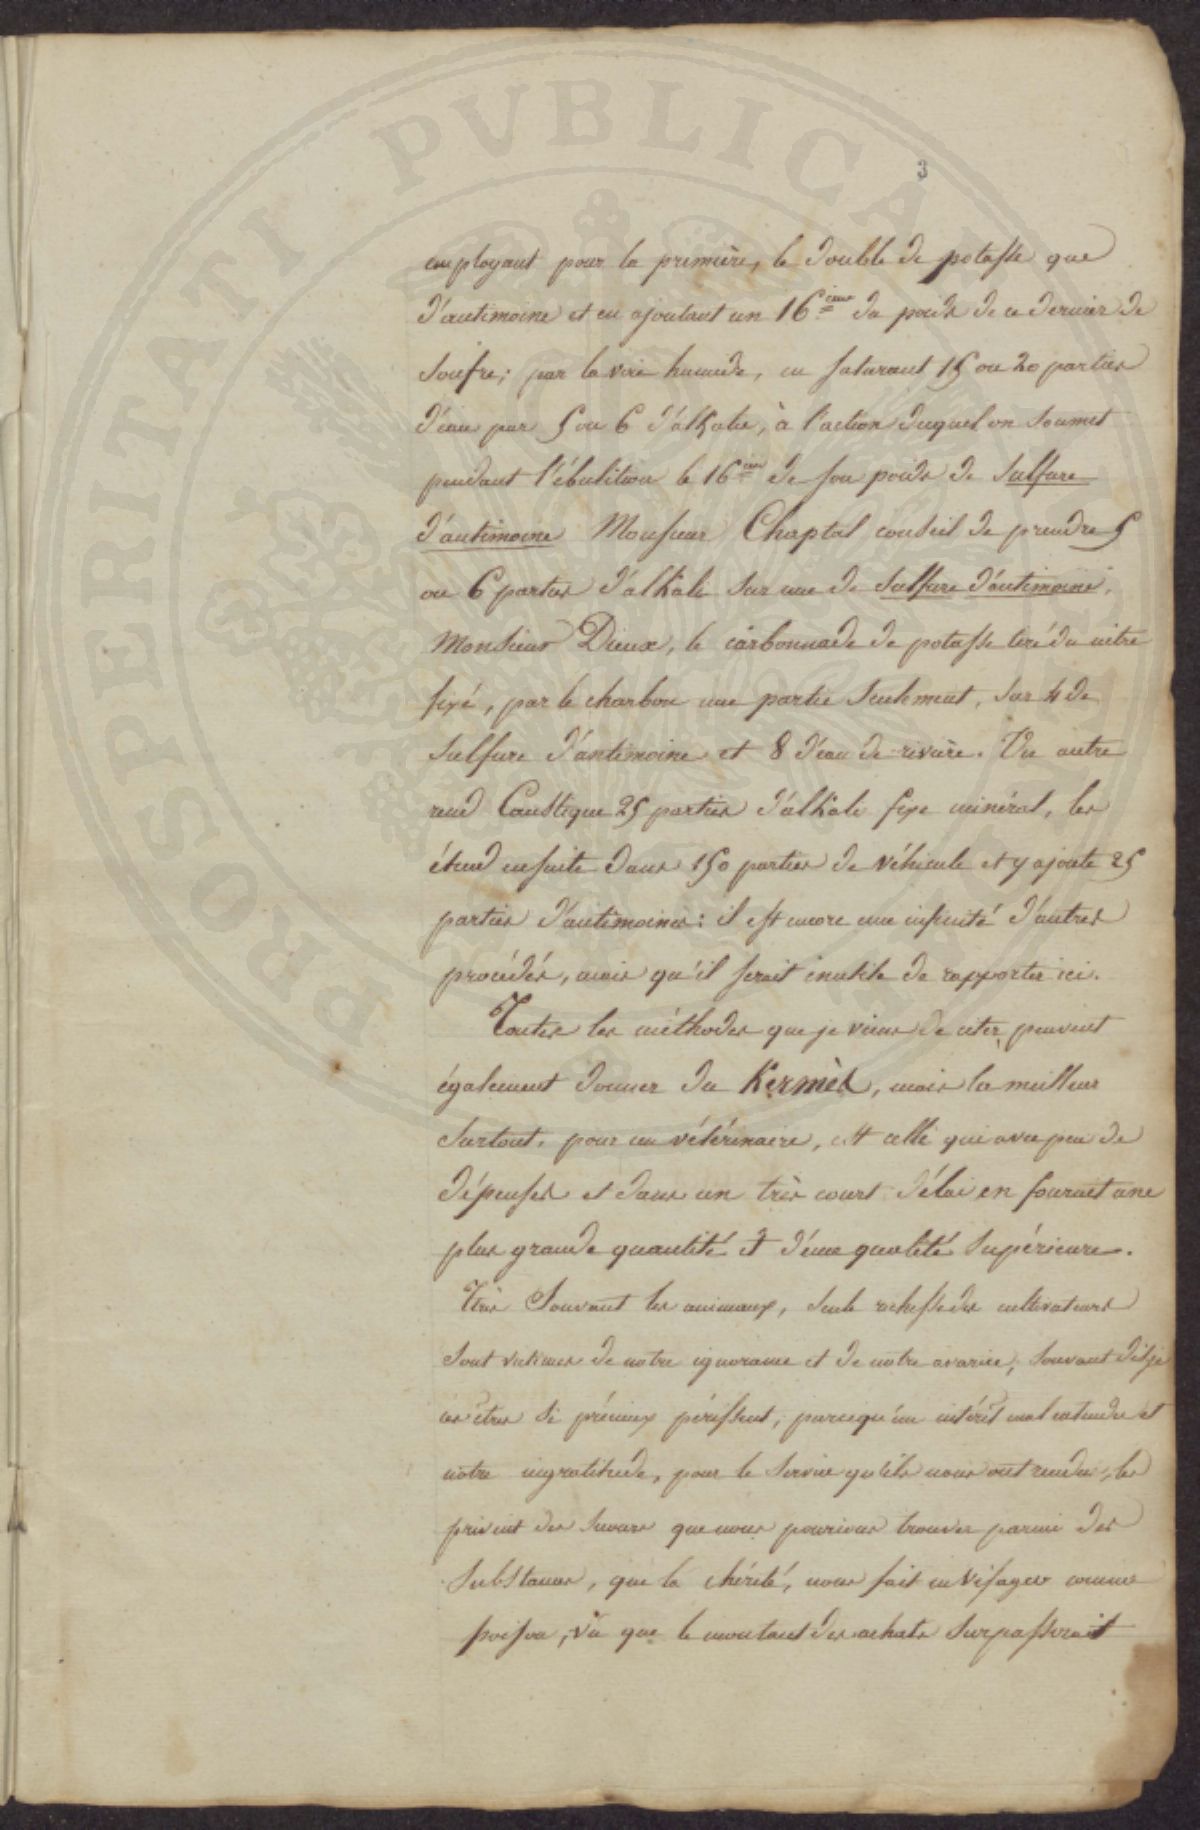 PROSPERITATI PUBLICAE
3
employant pour la première, le double de potasse que
d'antimoine et en ajoutant un 16ième du poids de ce dernier de
soufre; par la voie humide, en saturant 15 ou 20 parties
d'eau par 5 ou 6 d'alkalie, à l'action duquel on soumet
pendant l'ébulition le 16ième de son poids de Sulfure
d'antimoine Monsieur Chaptal conseil de prendre 5
ou 6 parties d'alkali sur une de Sulfure d'antimoine,
Monsieur Dieux, le carbonnade de potasse tiré du nitre
fixé, par le charbon une partie seulement, sur 4 de
Sulfure d'antimoine et 8 d'eau de rivière. Un autre
rend Caustique 25 parties d'alkali fixe minéral, les
étend ensuite dans 150 parties de véhicule et y ajoute 25
parties d'antimoines: il est encore une infinité d'autres
procédés, mais qu'il serait inutile de rapporter ici.
Toutes les méthodes que je viens de citer, peuvent
également donner du Kermès, mais la meilleur
surtout, pour un vétérinaire, est celle qui avec peu de
dépenses et dans un très court délai en fournit une
plus grande quantité et d'une qualité supérieure.
Très Souvent les animaux, seule richesse des cultivateurs
sont victimes de notre ignorance et de notre avarice, souvent dis-je
ces êtres si précieux périssent, parcequ'un intérêt mal entendu et
notre ingratitude, pour le service qu'ils nous ont rendus, les
privent des secours que nous pourions trouver parmi des
Substances, que la chérité, nous fait envisager comme
poison, vû que le montant des achats surpasserait